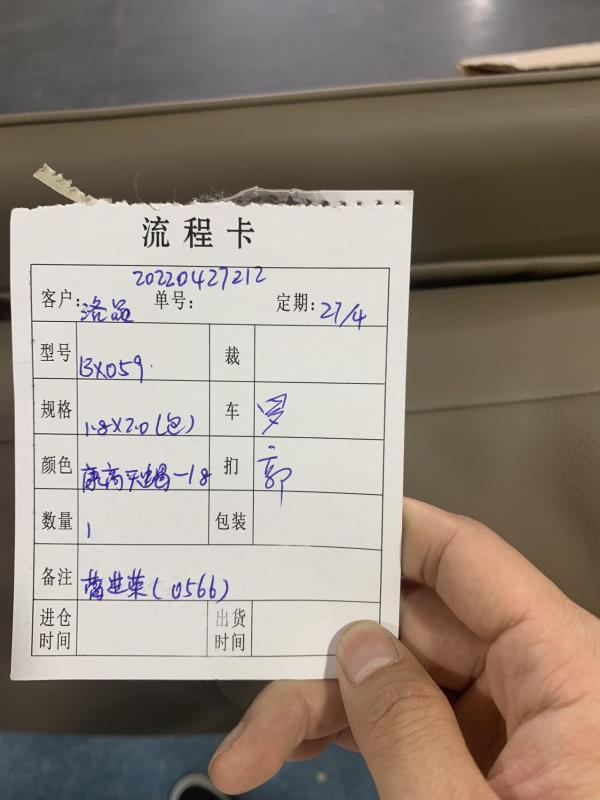 流程卡
20220427212
客户:洛品 单号: 定期:27/4
型号 BX059 裁
规格 1.8X2.0(包) 车 罗
颜色 -18 扪 郭
数量 1 包装
备注 (0566)
进仓时间 出货时间